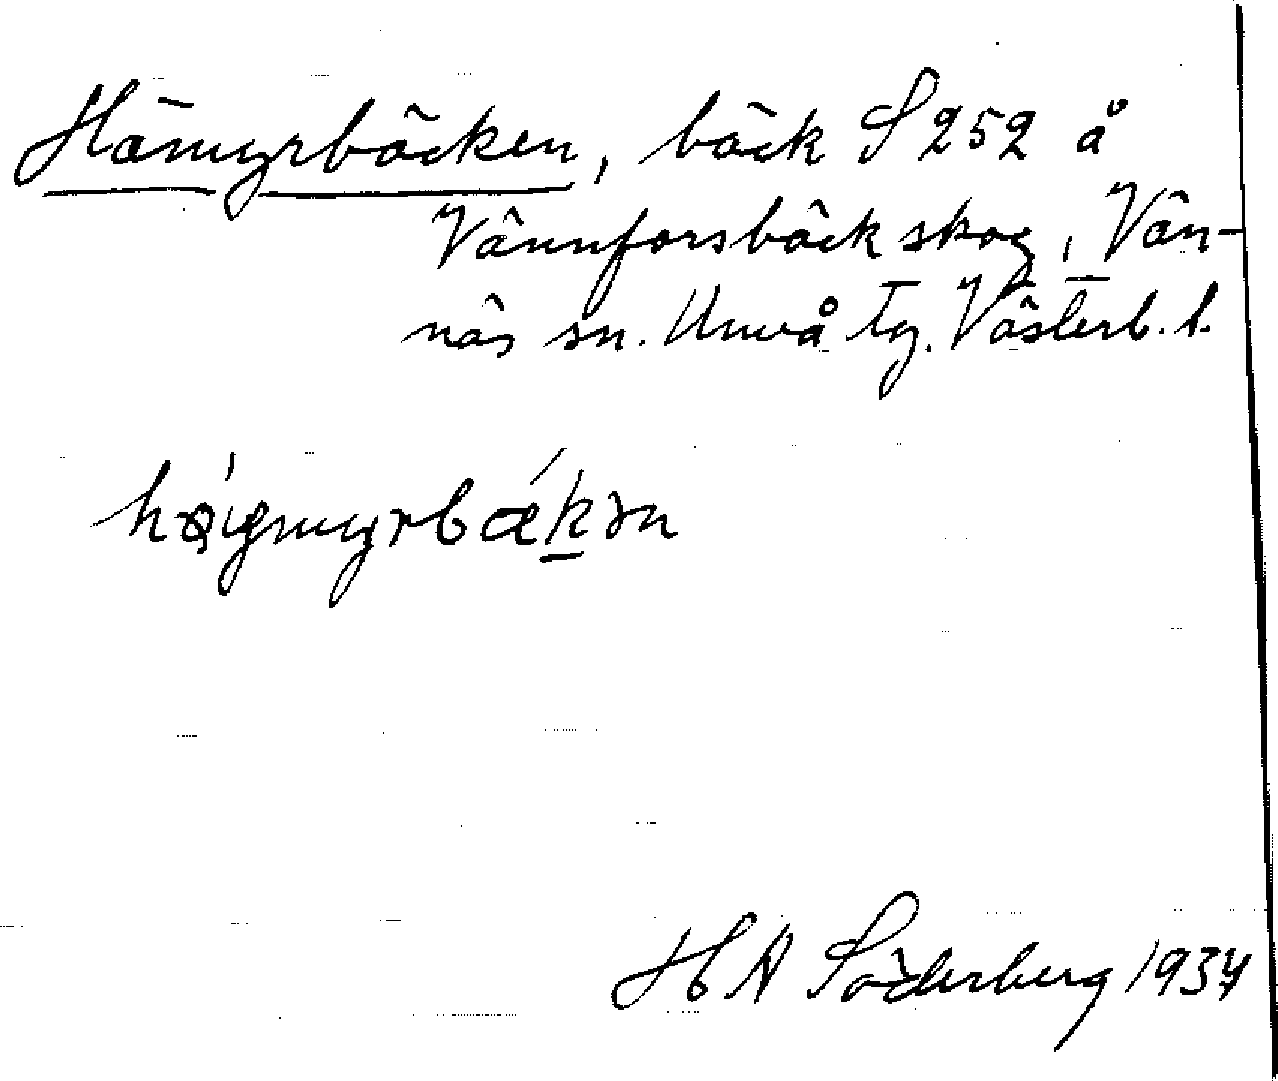 Hömyrbäcken, bäck S 252 å
Vännforsbäck skog, Vän-
näs sn. Umeå tg. Västerb. l.
H A Söderberg 1934